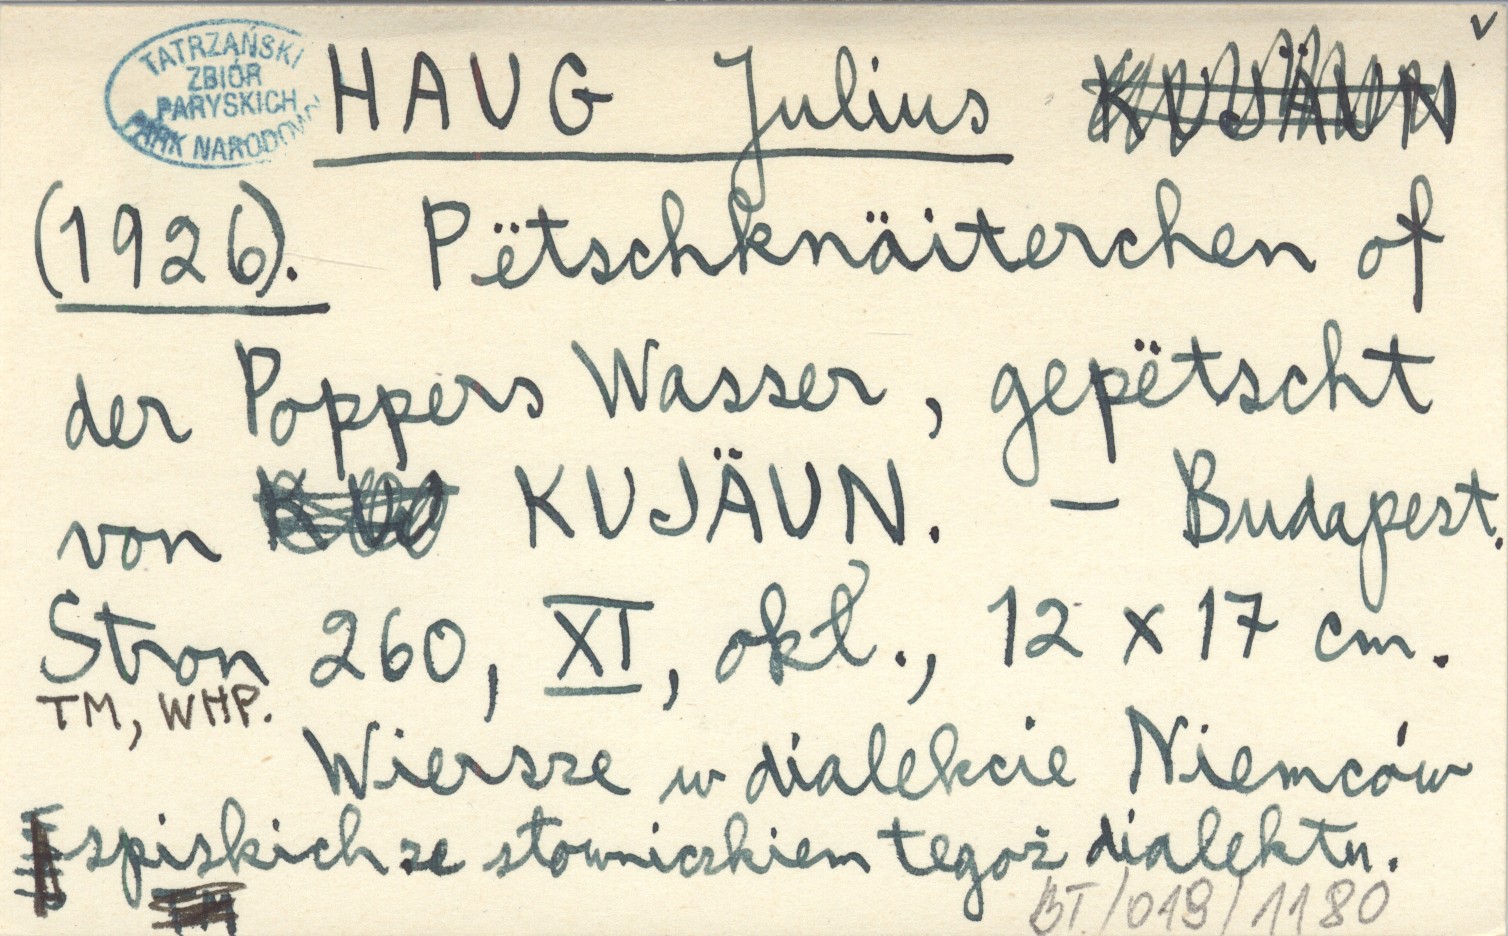 v
TATRZAŃSKI
ZBIÓR
PARYSKICH
PARK NARODOWY
HAUG Julius KUJÄUN
(1926). Pëtschknäiterchen of
der Poppers Wasser, gepëtscht
von KUJÄUN. – Budapest.
Stron 260, XI, okł., 12 x 17 cm.
TM, WHP.
Wiersze w dialekcie Niemców
spiskich ze słowniczkiem tegoż dialektu.
BT/019/1180